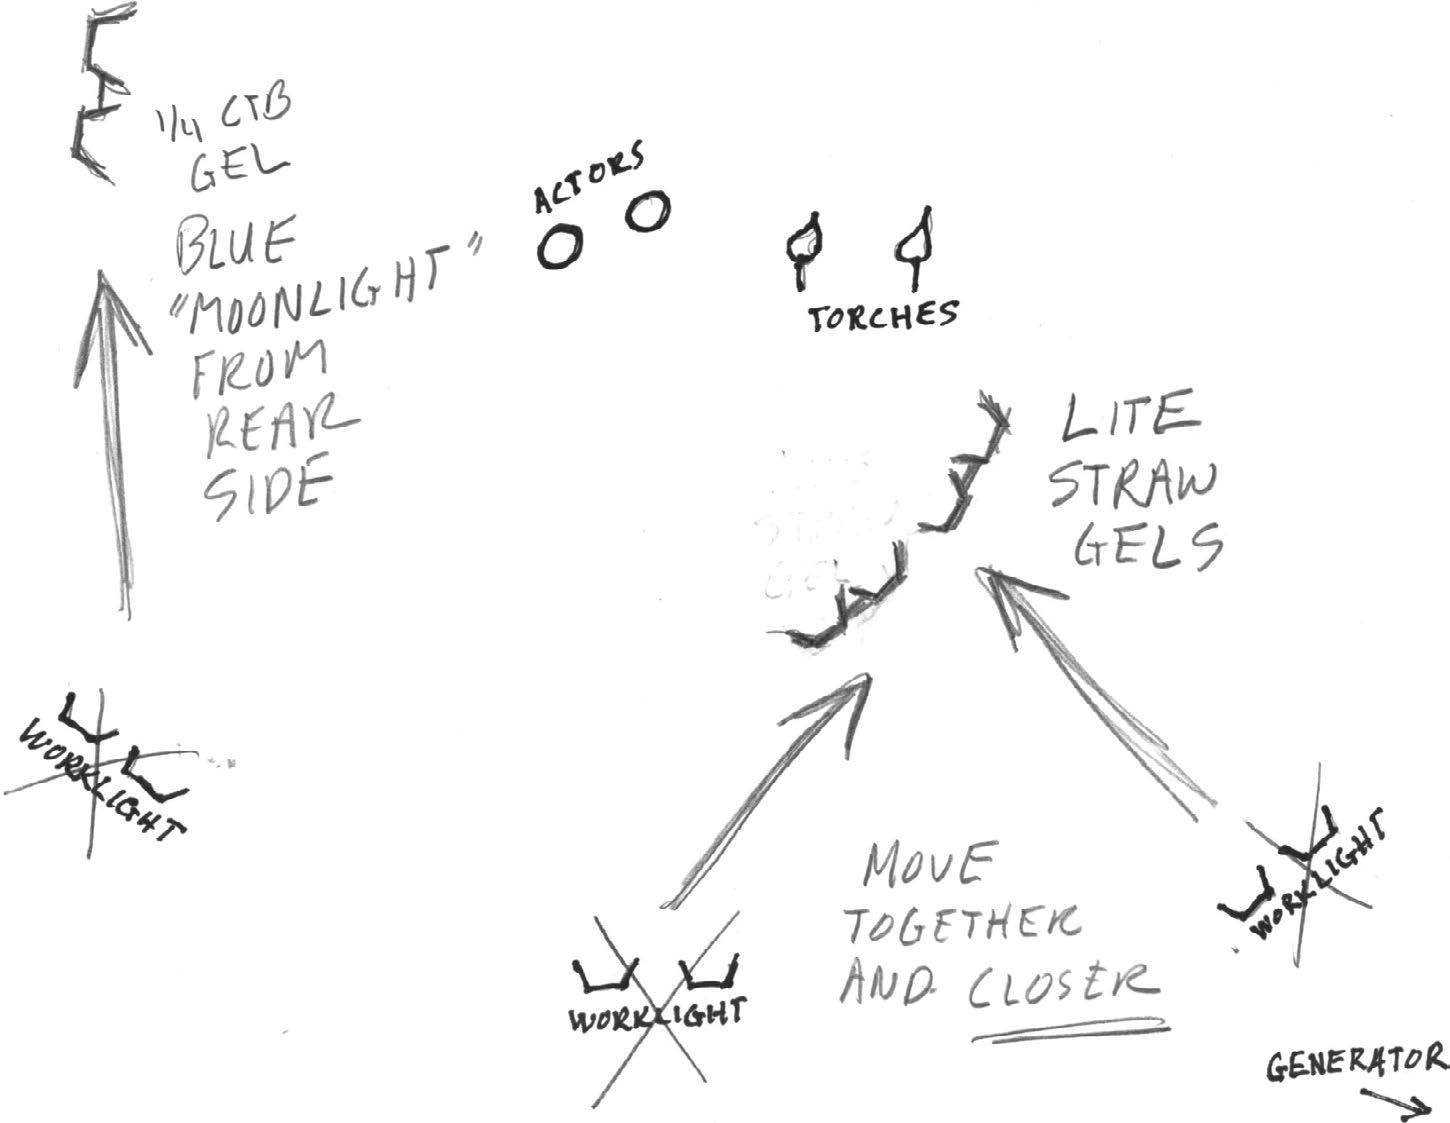 1/4 CTB
GEL
BLUE
"MOONLIGHT"
FROM
REAR
SIDE
ACTORS
TORCHES
LITE
STRAW
GELS
WORKLIGHT
WORKLIGHT
MOVE
TOGETHER
AND CLOSER
WORKLIGHT
GENERATOR